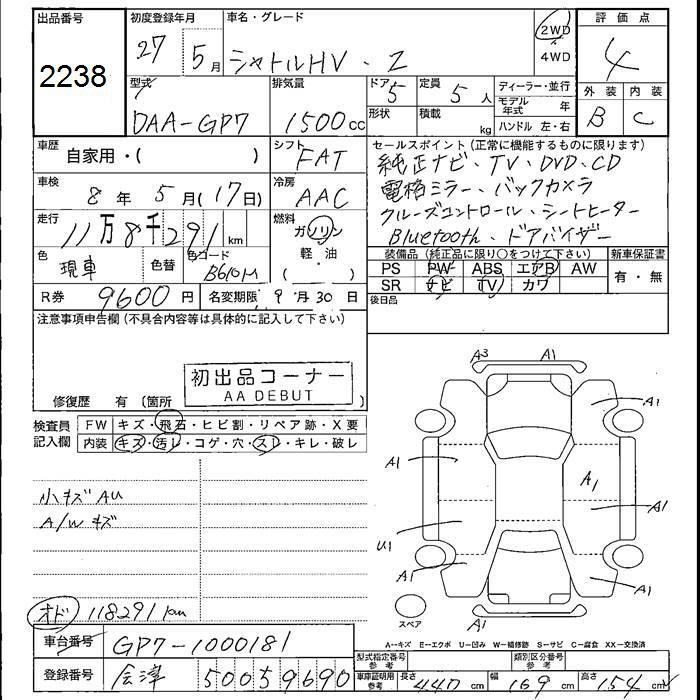 出品番号 初度登録年月 車名・グレード 2WD 評価点
2238 27 5月 シャトルHV・Z 4WD 4
型式 排気量 ドア 5 定員 5人 ディーラー・並行 外装 内装
DAA-GP7 1500cc 形状 積載 kg モデル年式 年 B C
ハンドル 左・右
車歴 自家用・( ) シフト FAT セールスポイント(正常に機能するものに限ります)
車検 8年 5月(17日) 冷房 AAC 純正ナビ、TV、DVD、CD
電格ミラー、バックカメラ
走行 11万8千291km 燃料 ガソリン 軽・油 クルーズコントロール、シートヒーター
Bluetooth、ドアバイザー
色 現車 色替 色コード B610M 装備品(純正品に限り○をつけて下さい) 新車保証書
PS PW ABS エアB AW 有・無
R券 9600円 名変期限 9月30日 SR ナビ TV カワ
後日品
注意事項申告欄(不具合内容等は具体的に記入して下さい)
初出品コーナー
AA DEBUT
修復歴 有(箇所 )
検査員 FW キズ・飛石・ヒビ割・リペア跡・X要
記入欄 内装 キズ・汚レ・コゲ・穴・スレ・キレ・破レ
A3 A1
A1
A1 A1
A1
小キズ AU
A/W キズ
U1
A1 A1
オド 118291km
スペア
A1
A--キズ E--エクボ U--凹み W--補修跡 S--サビ C--腐食 XX--交換済
車台番号 GP7-1000181
型式指定番号 参考 類別区分番号 参考
登録番号 会津 500 5 9690
車庫証明用 参考 長さ 440cm 幅 169cm 高さ 154cm